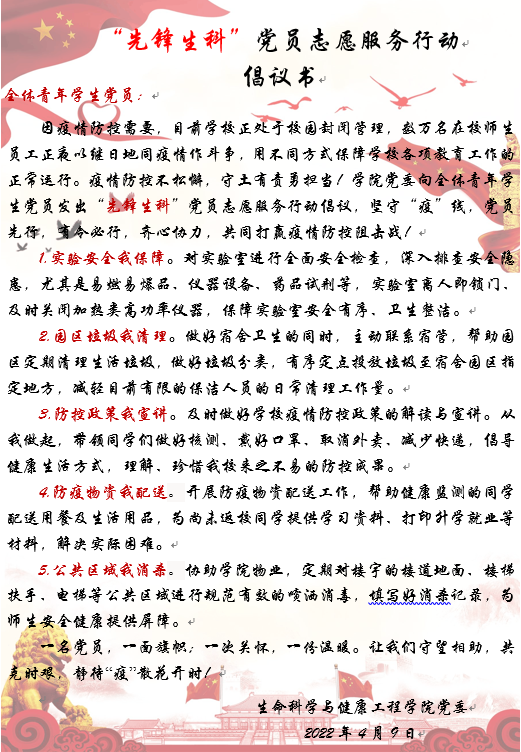 “先锋生科”党员志愿服务行动
倡议书
全体青年学生党员：
因疫情防控需要，目前学校正处于校园封闭管理，数万名在校师生
员工正夜以继日地同疫情作斗争，用不同方式保障学校各项教育工作的
正常运行。疫情防控不松懈，守土有责勇担当！学院党委向全体青年学
生党员发出“先锋生科”党员志愿服务行动倡议，坚守“疫”线，党员
先行，有令必行，齐心协力，共同打赢疫情防控阻击战！
1.实验安全我保障。对实验室进行全面安全检查，深入排查安全隐
患，尤其是易燃易爆品、仪器设备、药品试剂等，实验室离人即锁门、
及时关闭加热类高功率仪器，保障实验室安全有序、卫生整洁。
2.园区垃圾我清理。做好宿舍卫生的同时，主动联系宿管，帮助园
区定期清理生活垃圾，做好垃圾分类，有序定点投放垃圾至宿舍园区指
定地方，减轻目前有限的保洁人员的日常清理工作量。
3.防控政策我宣讲。及时做好学校疫情防控政策的解读与宣讲。从
我做起，带领同学们做好核测、戴好口罩、取消外卖、减少快递，倡导
健康生活方式，理解、珍惜我校来之不易的防控成果。
4.防疫物资我配送。开展防疫物资配送工作，帮助健康监测的同学
配送用餐及生活用品，为尚未返校同学提供学习资料、打印升学就业等
材料，解决实际困难。
5.公共区域我消杀。协助学院物业，定期对楼宇的楼道地面、楼梯
扶手、电梯等公共区域进行规范有效的喷洒消毒，填写好消杀记录，为
师生安全健康提供屏障。
一名党员，一面旗帜；一次关怀，一份温暖。让我们守望相助，共
克时艰，静待“疫”散花开时！
生命科学与健康工程学院党委
2022 年 4 月 9 日